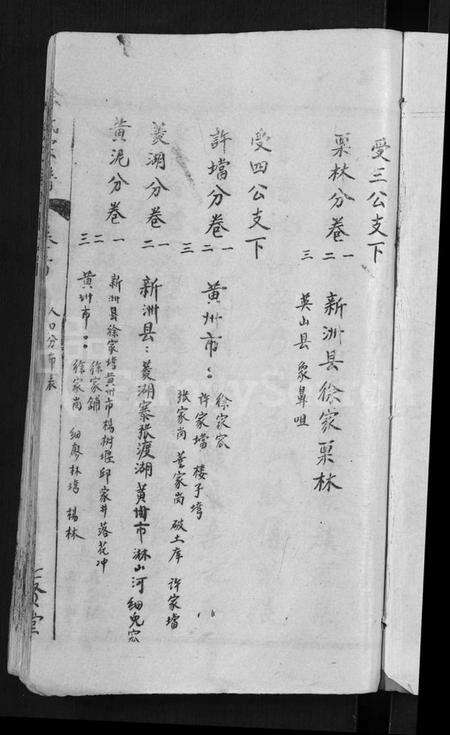 受三公支下
栗林分卷 一二三 新洲县徐家栗林
英山县 象鼻咀
受四公支下
許壋分卷 一二三 黄州市：徐家宕
许家壋 楼子塆
张家岗 董家岗 破土库 许家壋
菱湖分卷 一二 新洲县：菱湖寨张渡湖 黄州市淋山河 细兜宕
黃泥分卷 一二三 新洲县徐家塆 黄州市杨树堰 邱家井 落花冲
徐家铺
黄州市：徐家岗 细廖林塆 杨林
人口分布表